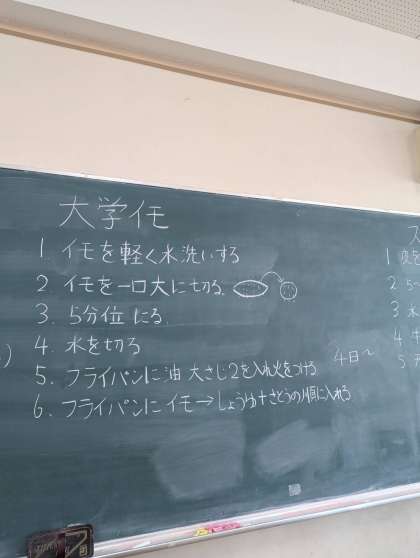 大学イモ
1. イモを軽く水洗いする
2 イモを一口大に切る
3. 5分位にる
4. 水を切る
5. フライパンに油 大さじ2を入れ火をつける
6. フライパンにイモ→しょうゆ+さとうの順に入れる
4日~
1
2
3
4
5